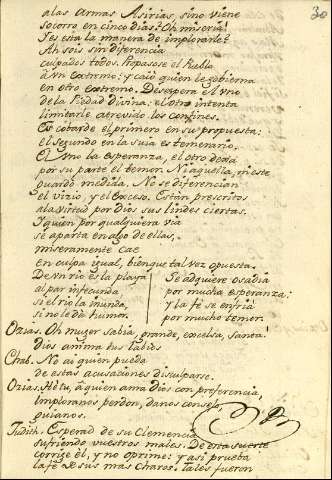 30
a las Armas Asirias, sino viene
socorro en cinco dias? Oh miseria!
Y es esta la manera de implorarle?
Ah sois sin diferencia
culpados todos. Propasose el Pueblo
à un extremo: y caiò quien le gobierna
en otro extremo. Desespera el uno
de la Piedad Divina: el otro intenta
limitarle atrevido los confines.
Es cobarde el primero en su propuesta:
el Segundo en la suia es temerario.
El uno la esperanza, el otro dexa
por su parte el temor. Ni aquella, ni este
guardò medida. No se diferencian
el vizio, y el exceso. Estàn prescritos
a la Virtud por Dios sus lindes ciertas.
Y quien por qualquiera via
se aparta en algo de ellas,
miseramente cae
en culpa igual, bien que tal vez opuesta.
De un rio es la playa
al par infecunda
si el rio la inunda,
si no le dà humor.
Se adquiere osadia
por mucha esperanza:
y la fè se enfria
por mucho temor.
Ozias. Oh muger sabia, grande, excelsa, santa!
Dios anima tus labios
Chab. No ai quien pueda
de estas acusaciones disculparse.
Ozias. He tu, à quien ama Dios con preferencia,
imploranos perdon, danos consejo,
guianos.
Judith. Esperad de su Clemencia
sufriendo vuestros males. De esta suerte
corrige èl, y no oprime: y asi prueba
la fè de sus mas charos. Tales fueron